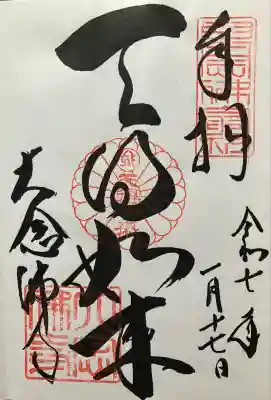 奉拝
令和七年
一月十七日
天得如来
大念佛寺